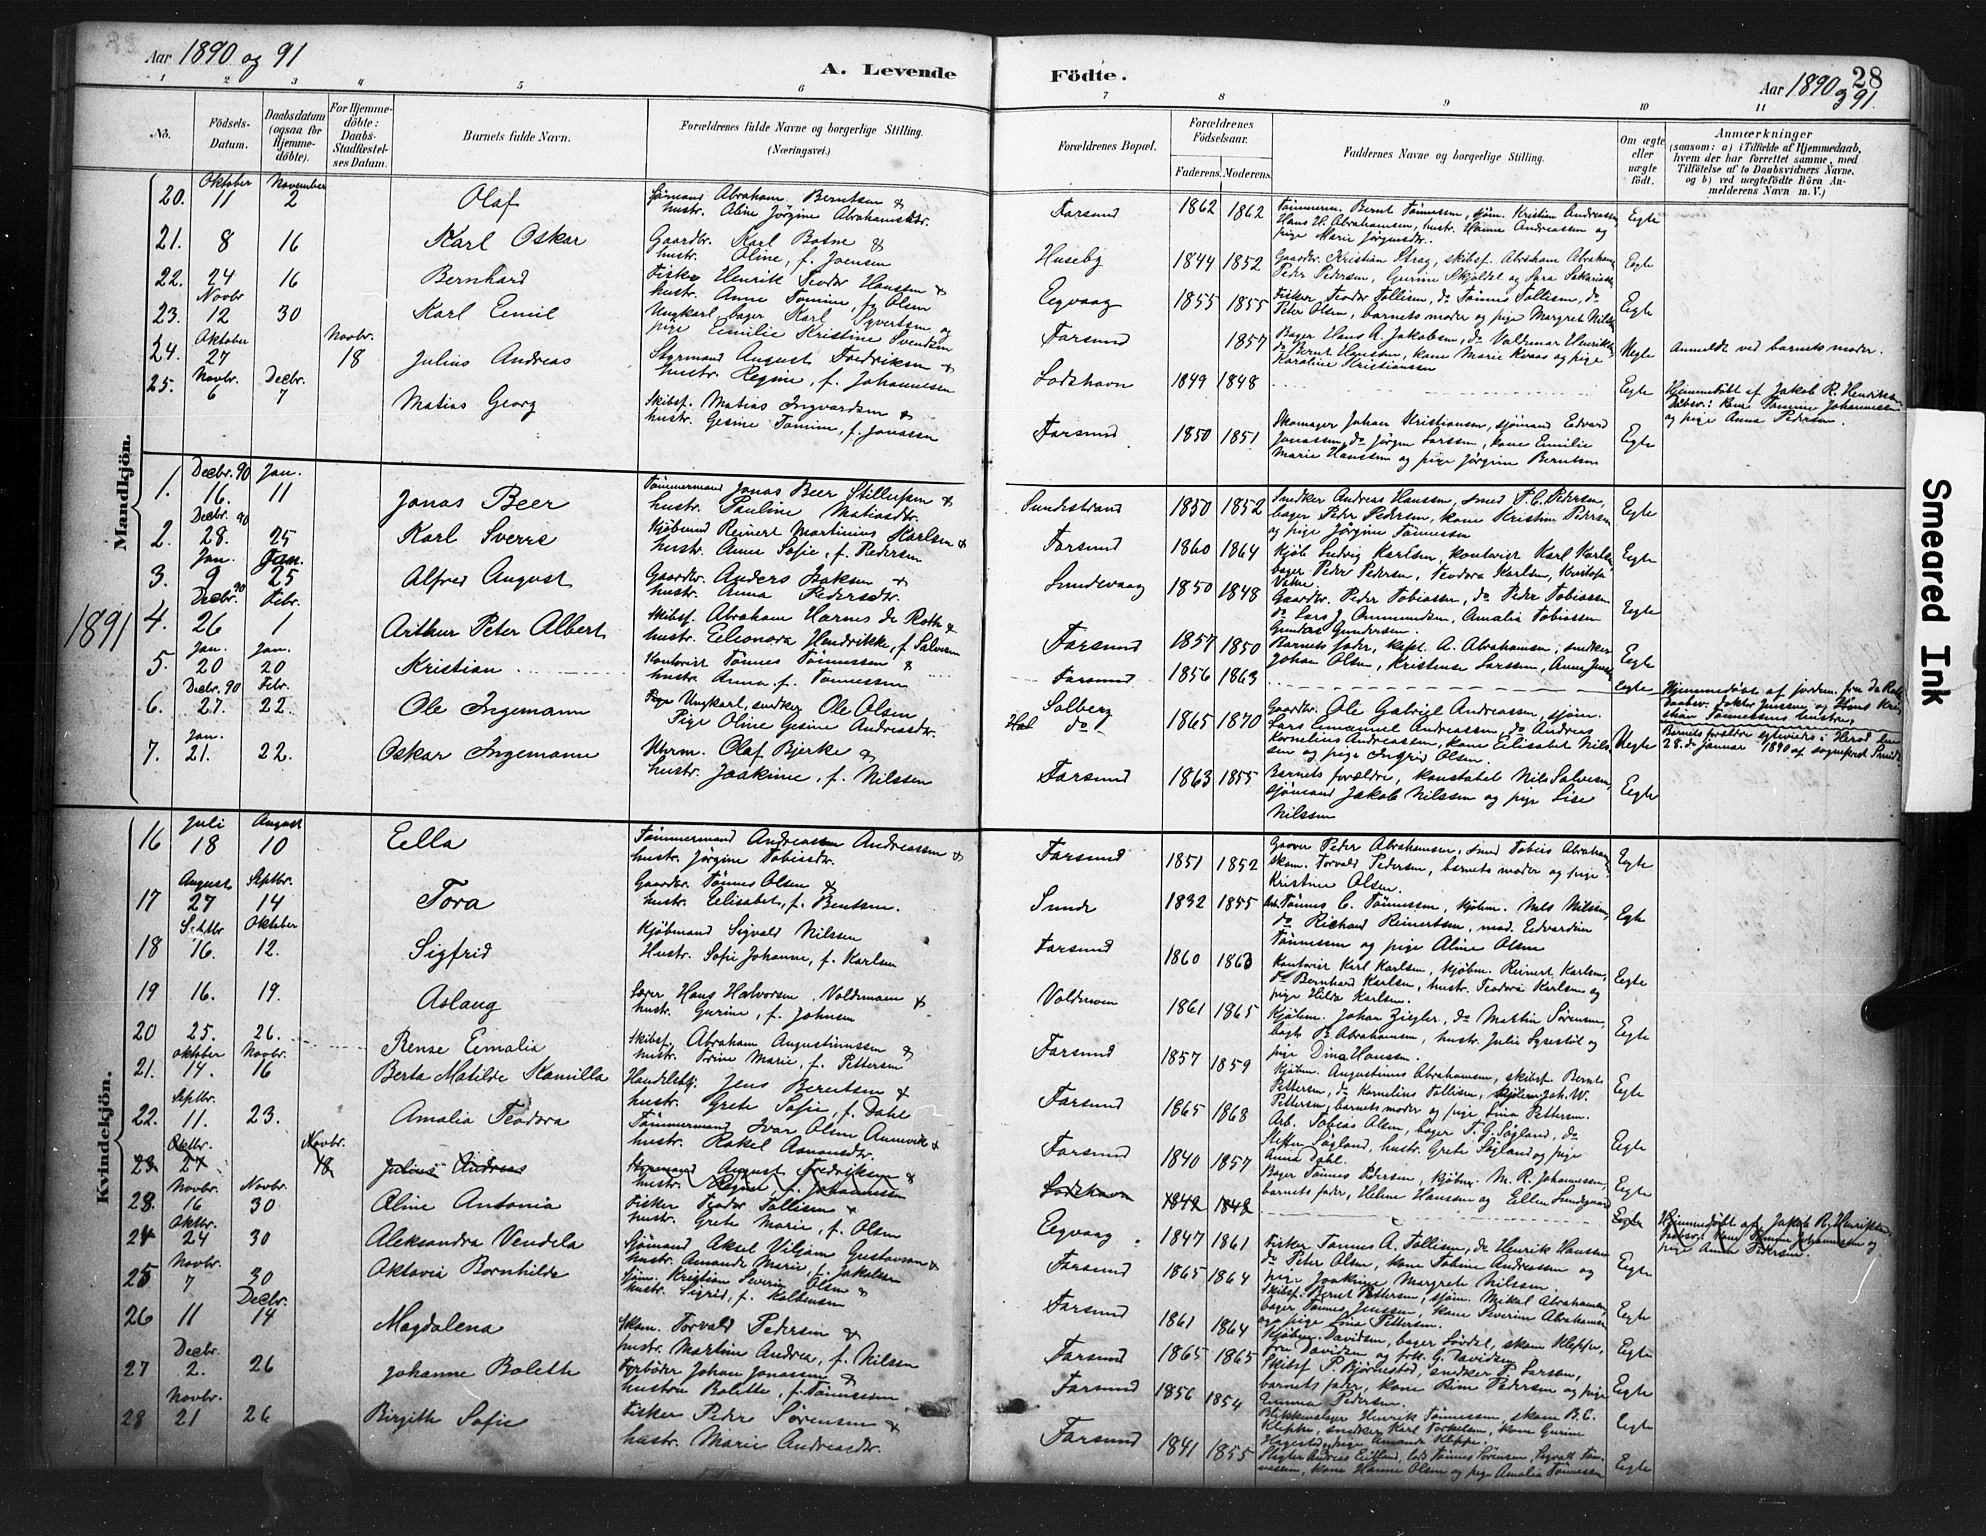 Aar 1890 og 91
A. Levende
Födte.
Aar 1890 og 91.
28
1 2 3 4 5 6 7 8 9 10 11
Nö.
Födsels-Datum.
Daabsdatum (ogsaa för Hjemme-döbte).
For Hjemme-döbte: Daabs-Stadfæstel-ses Datum.
Barnets fulde Navn.
Forældrenes fulde Navne og borgerlige Stilling.
(Næringsvei.)
Forældrenes Bopæl.
Forældrenes Födselsaar.
Faderens. Moderens.
Faddernes Navne og borgerlige Stilling.
Om ægte eller uægte födt.
Anmærkninger
(saasom: a) i Tilfælde af Hjemmedaab, hvem der har forrettet samme, med Tilföielse af to Daabsvidners Navne, og b) ved uægtefödte Börn Anmelderens Navn m. V.)
Mandkjön.
20. Oktober 11 November 2 Olaf
Sjømand Abraham Berntsen &
hustr. Aline Jørgine Abrahamsdtr.
Farsund 1862 1862
Tømmerm. Bernt Tønnessen, sjøm. Kristian Andreassen,
Hans H. Abrahamsen, hustr. Hanne Andreassen og
pige Marie Jørgensdtr.
Egte
21. 8 16 Karl Oskar
Gaardbr. Karl Botne &
hustr. Oline, f. Joensen
Huseby 1844 1852
Egte
22. 24 16 Bernhard
Fisker Henrik Teodor Hanssen &
hustr. Anne Tomine, f. Olsen
Eegvaag 1855 1855
Fisker Teodor Tollisen, do Tønnes Tollisen, do
Peter Olsen, barnets moder og pige Margrete Nilsen
Egte
23. Novbr 12 30 Karl Emil
Ungkarl bager Karl Syvertsen og
pige Emilie Kristine Svendsen
Farsund 1857
Bager Hans A. Jakobsen, do Valdemar Henriksen
Karoline Kristianssen
Uegte
Anmeldt ved barnets moder.
24. Oktober 27 Novbr. 18 Julius Andreas
Styrmand August Fredriksen &
hustr. Regine, f. Johannesen
Lodshavn 1849 1848
Egte
Hjemmedöbt af Jakob R. Henriksen
og pige Anna Pedersen.
25. Novbr. 6 Decbr. 7 Matias Georg
Skibsf. Matias Ingvardsen &
hustr. Gesine Tomine, f. Jonassen
Farsund 1850 1851
Skomager Johan Kristiansen, sjømand Edvard
Jonassen, do Jørgen Larssen, kone Emilie
Marie Hanssen og pige Jørgine Berntsen
Egte
1891
1. Decbr. 90 16. Jan. 11 Jonas Beer
Tømmermand Jonas Beer Stillufsen &
hustr. Pauline Matiasdtr.
Sundestrand 1850 1852
Snedker Andreas Hanssen, smed T. C. Pedersen,
bager Peder Pedersen, kone Kristine Pedersen
og pige Jörgine Tönnessen
Egte
2. Decbr. 90 28. 25 Karl Sverre
Kjøbmand Reinert Martinius Karlsen &
hustr. Anne Sofie, f. Pedersen
Farsund 1860 1864
Egte
3. Jan. 9 Jan. 25 Alfred August
Gaardbr. Anders Isaksen &
hustr. Anna Pedersdtr.
Sundevaag 1850 1848
Gaardbr. Peder Tobiassen, do Peder Tobiassen
do Lars J. Ommundsen, Amalia Tobiassen
Gunders Gundersen.
Egte
4. Decbr. 90 26 Febr. 1 Arthur Peter Albert
Skibsf. Abraham Harms de Roth &
hustr. Eleonora Hendrikke, f. Salvesen
Farsund 1857 1850
Barnets fader, kapt. A. Abrahamsen, snedker
Johan Olsen, Kristense Larssen,
Egte
5. Jan. 20 Jan. 20 Kristian
Kontorist Tönnes Tönnessen &
hustr. Anna, f. Tönnessen
Farsund 1856 1863
Egte
6. Decbr. 90 27. Febr. 22. Ole Ingemann
Ungkarl, snedker Ole Olsen
Pige Oline Gesine Andreasdtr.
Solberg
do 1865 1870
Gaardbr. Ole Gabriel Andreassen, sjøm.
Lars Emanuel Andreassen, do Andreas
Kornelius Andreassen, kone Elisabet Nils-
sen og pige Ingrid Olsen.
Uegte
7. Jan. 21. 22. Oskar Ingemann
Uhrm. Olaf Bjerke &
hustr. Joakime, f. Nilssen
Farsund 1863 1855
Barnets forældre, konstabel Nils Salvesen,
sjømand Jakob Nilssen og pige Lise
Nilssen
Egte
Kvindekjön.
16 Juli 18 August 10 Ella
Tømmermand Andreassen Andreassen &
hustr. Jörgine Tobiasdtr.
Farsund 1851 1852
Garver Peder Abrahamsen, smed Tobias Abraham
skom. Torvald Pedersen, barnets moder og pige
Kristine Olsen.
Egte
17 August 27 Septbr. 14 Tora
Gaardbr. Tönnes Olsen &
hustr. Elisabet, f. Bentsen.
Sunde 1832 1855
Arb. Tönnes C. Tönnessen, kjøbm. Nils Nilssen,
do Richard Reinertsen, mad. Edvardine
Tönnessen og pige Aline Olsen
Egte
18 Septbr 16. Oktober 12. Sigfrid
Kjøbmand Sigvald Nilssen
Hustr. Sofie Johanne, f. Karlsen
Farsund 1860 1863
Kontorist Karl Karlsen, kjøbm. Reinert Karlsen,
do Bernhard Karlsen, hustr. Teodora Karlsen og
pige Hilda Karlsen.
Egte
19 16. 19. Aslaug
Lærer Hans Halvorsen Voldemoen &
hustr. Gurine, f. Johnsen
Voldemoen 1861 1865
Kjøbm. Johan Ziegler, do Martin Sörensen,
pige Dina Hanssen.
Egte
20 25. 26. Rense Emalia
Skibsf. Abraham Augustinussen &
hustr. Torine Marie, f. Pettersen
Farsund 1857 1859
Kjøbm. Augustinus Abrahamsen, skibsf. Bernt
Pettersen, do Kornelius Tollisen,
Pettersen, barnets moder og pige Lina Pettersen.
Egte
21. Oktober 14. Novbr. 16 Berta Matilde Kamilla
Handelsbtj. Jens Berntsen &
hustr. Grete Sofie, f. Dahl
Farsund 1865 1868
Arb. Tobias Olsen, bager T. G. Søgland, do
Steffen Søgland, hustr. Grete Søgland og pige
Anna Dahl.
Egte
22. Septbr. 11. 23. Amalia Teodora
Tømmermand Ivar Olsen Aunevik &
hustr. Rakel Aanonsdtr.
Farsund 1840 1857
Bager Tönnes Pedersen, kjøbm. M. R. Johannessen,
barnets fader, Helene Hanssen og Ellen Sundgaard
Egte
23 Oktbr. 27 Novbr. 18 Julius Andreas
Styrmand August Fredriksen &
hustr. Regine f. Johannessen
Lodshavn
Egte
Hjemmedöbt af Jakob R. Henriksen
pige Anna Pedersen.
23. Novbr. 16 Novbr. 30 Aline Antonia
Fisker Teodor Tollisen &
hustr. Grete Marie, f. Olsen
Eegvaag 1847 1861
Fisker Tønnes A. Tollisen, do Henrik Hanssen
do Peter Olsen, kone Tobine Andreassen og
pige Joakime Margrete Nilssen.
Egte
24 Oktbr. 24 30 Aleksandra Vendela
Sjømand Aksel Viljam Gustavsen &
hustr. Amanda Marie, f. Jakobsen
Farsund 1865 1864
Skibsf. Bernt Pettersen, sjøm. Mikal Abrahamsen,
bager Tönnes Jenssen, kone Severine Abrahamsen
og pige Lina Pettersen.
Egte
25 Novbr. 7 30 Oktavia Bornhilde
sjøm. Kristian Severin Olsen &
hustr. Sigrid, f. Kolbensen
Farsund 1861 1864
Kjøbm. Davidsen, bager Lövdal, skom. Kleppe,
fru Davidsen og frk. G. Davidsen
Egte
26 11 Decbr. 14 Magdalena
Skom. Torvald Pedersen &
hustr. Martine Andrea, f. Nilsen
Farsund 1865 1865
Skibsf. P. Björnestad, snedker T. Larssen,
barnets fader, kone Rine Pedersen og pige
Emma Pedersen.
Egte
27 Decbr. 2. 26 Johanne Bolette
Fyrbøder Johan Jonassen &
hustru Bolette, f. Tönnessen
Farsund 1856 1854
Blikkenslager Henrik Tönnessen, skom B. C.
Kleppe, snedker Karl Torkelsen, kone Gurine
Amanda Kleppe.
Egte
28 Novbr. 21 26 Birgitte Sofie
Fisker Peder Sörensen &
hustr. Marie Andreasdtr.
Farsund 1841 1855
Slagter Andreas Eitland, lods Tönnes Sörensen, Sigvald Tön-
nessen, kone Hanne Olsen og pige Amalia Tönnessen
Egte
Smeared Ink